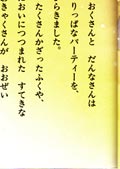 おくさんと　だんなさんは
りっぱなパーティーを、
らきました。
たくさんかざったふくや、
おいにつつまれた　すてきな
きゃくさんが　おおぜい